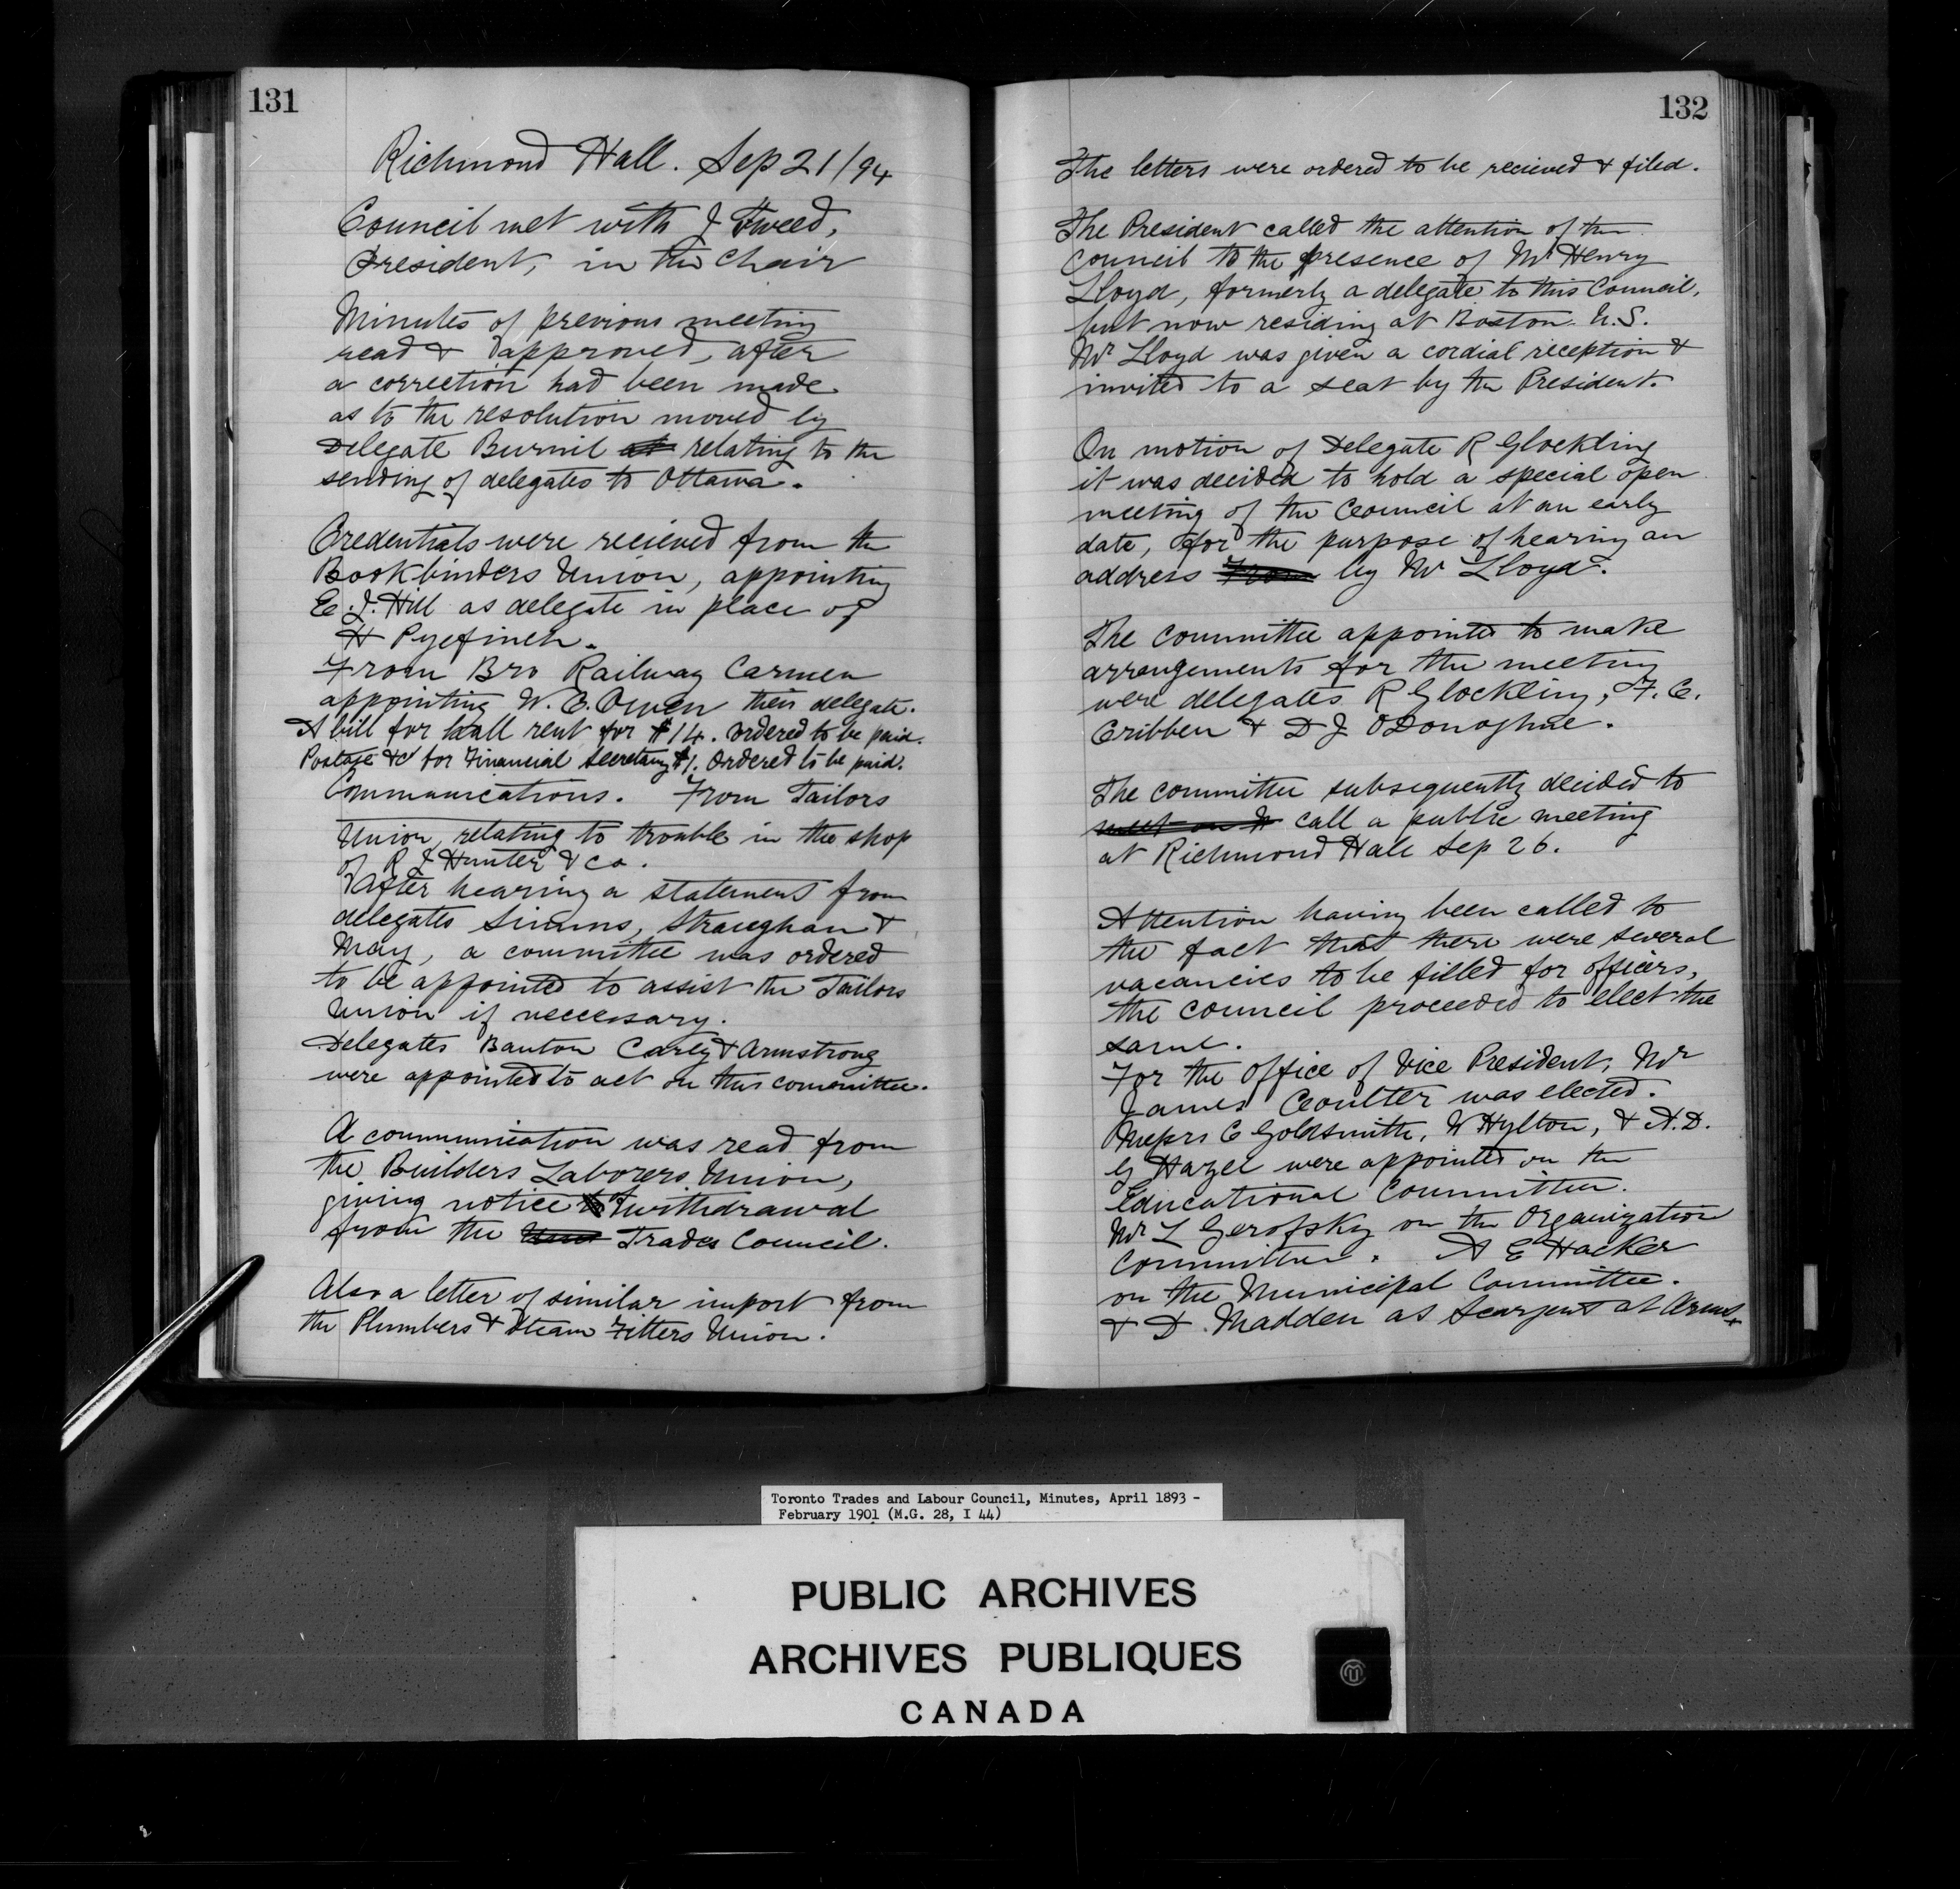 131
Richmond Hall. Sep 21/94
Council met with J Tweed,
President, in the Chair
Minutes of previous meeting
read & approved, after
a correction had been made
as to the resolution moved by
Delegate Burnil relating to the
sending of delegates to Ottawa.
Credentials were recieved from the
Bookbinders Union, appointing
E. J. Hill as delegate in place of
H Pyefinch.
From Bro Railway Carmen
appointing W. B. Owen their delegate.
A bill for hall rent for $14. ordered to be paid.
Postage &c for Financial Secretary $1. Ordered to be paid.
Communications. From Tailors
Union, relating to trouble in the shop
of R J Hunter & Co.
After hearing a statement from
delegates Simms, Straughan &
May, a committee was ordered
to be appointed to assist the Tailors
Union if neccessary.
Delegates Banton Carey & Armstrong
were appointed to act on this committee.
A communication was read from
the Builders Laborers Union,
giving notice of withdrawal
from the Trades Council.
Also a letter of similar import from
the Plumbers & Steam Fitters Union.
132
The letters were ordered to be recieved & filed.
The President called the attention of the
Council to the presence of Mr Henry
Lloyd, formerly a delegate to this Council,
but now residing at Boston U.S.
Mr Lloyd was given a cordial reception &
invited to a seat by the President.
On motion of Delegate R Glockling
it was decided to hold a special open
meeting of the Council at an early
date, for the purpose of hearing an
address from by Mr Lloyd.
The committee appointed to make
arrangements for the meeting
were delegates R Glockling, F. C.
Cribben & D J ODonoghue.
The committee subsequently decided to
meet on call a public meeting
at Richmond Hall Sep 26.
Attention having been called to
the fact that there were several
vacancies to be filled for officers,
the council proceeded to elect the
same.
For the office of Vice President, Mr
James Coulter was elected.
Messrs C Goldsmith, W Hylton, & A. D.
G Hazel were appointed on the
Educational Committee.
Mr L Gerofsky on the Organization
Committee. A E Hacker
on the Municipal Committee.
& D. Madden as Searjent at Arms
Toronto Trades and Labour Council, Minutes, April 1893 -
February 1901 (M.G. 28, I 44)
PUBLIC ARCHIVES
ARCHIVES PUBLIQUES
CANADA